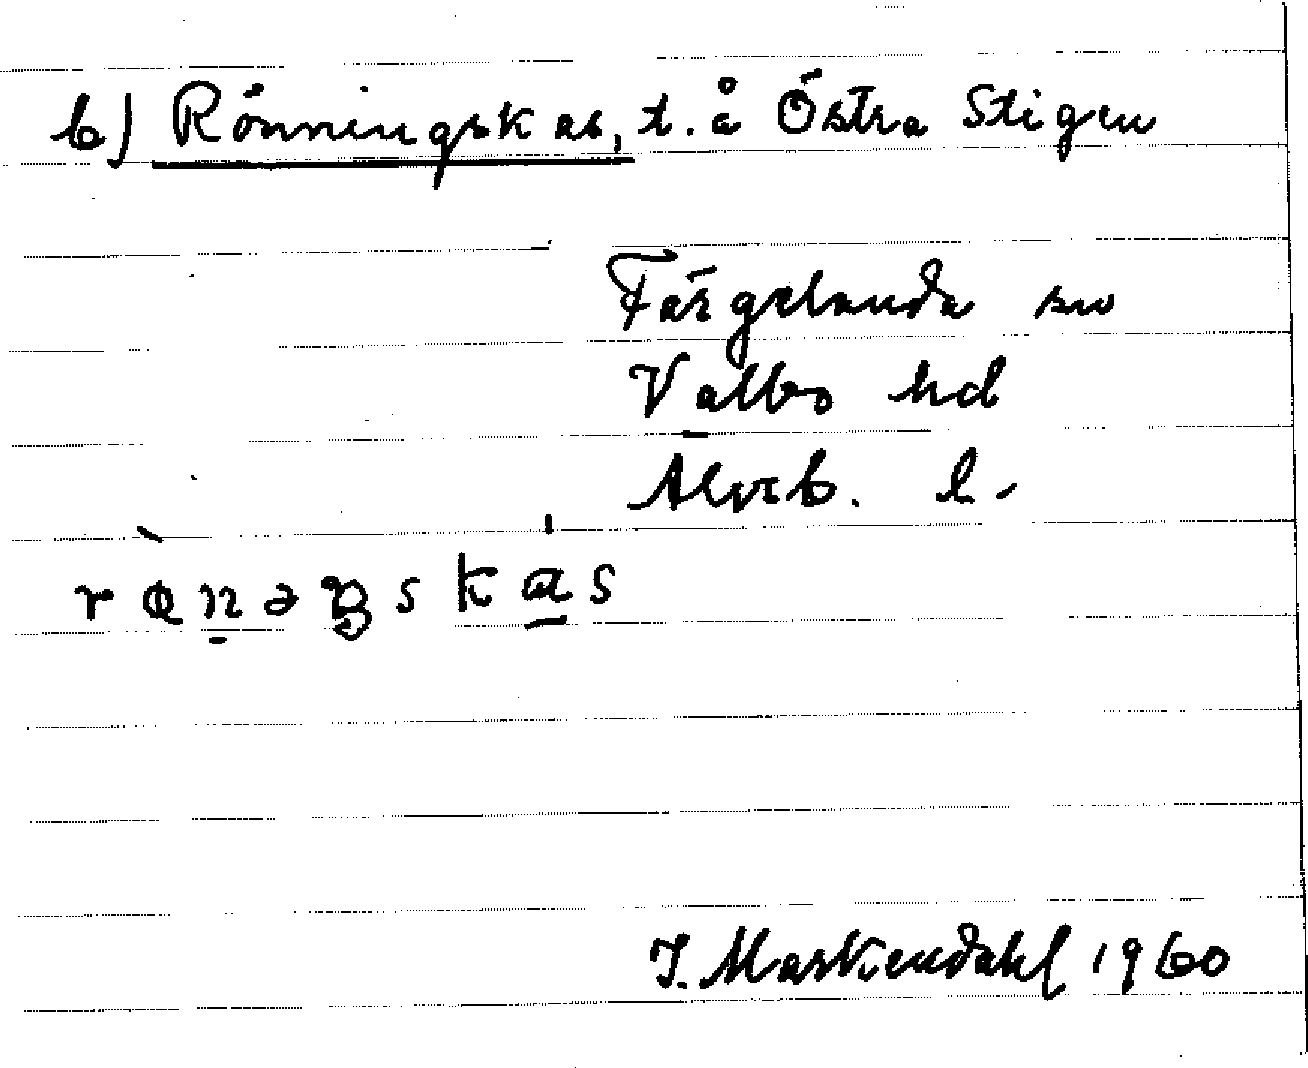 b) Rönningskas, t. å Östra Stigen
Färgelanda sn
Valbo hd
Älvsb. l.
I. Markendahl 1960